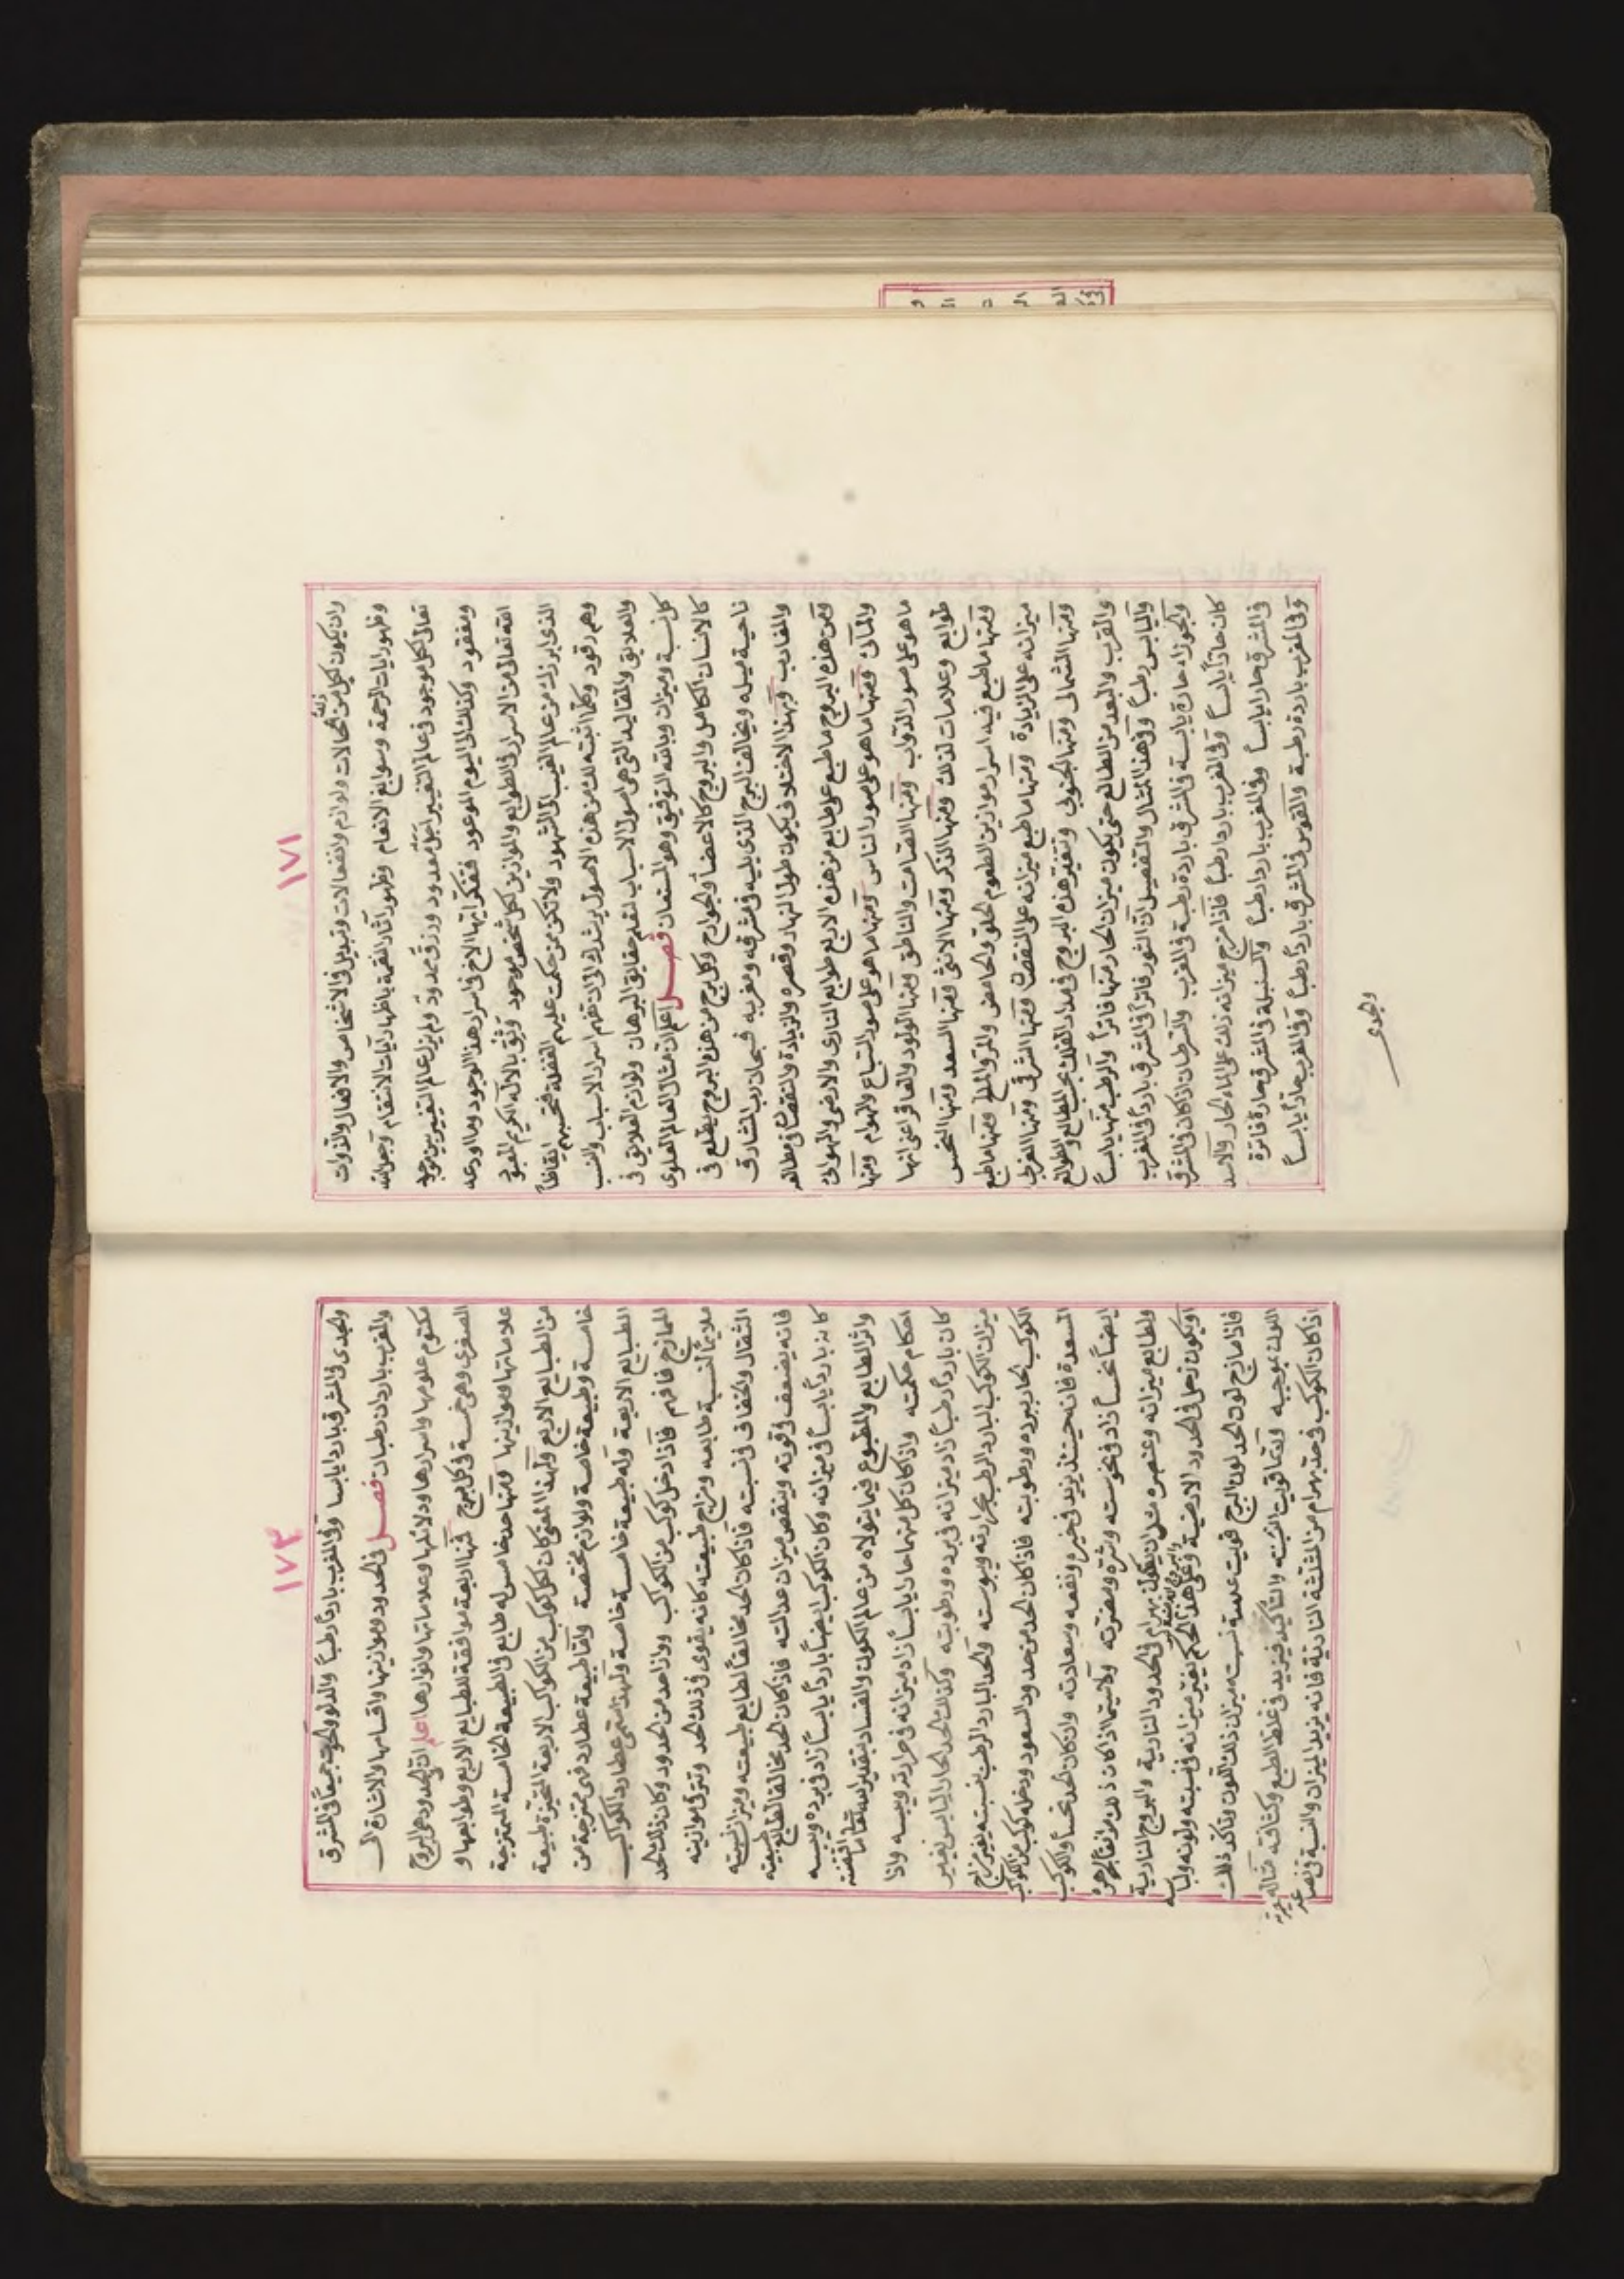 ١٧١
وان يكون لكل من الحالات ولوازم وانفعالات وتبديل في الاشخاص والافعال والذوات
وظهور ايات الرحمة وسوابغ الانعام وظهور آثار النقمة باظهار آيات الانتقام وجعل الله
تعالى لكل موجود في عالم التغيير اجل معدود ورزق ممدود ولم يزل عالم التغيير بين موجود
ومفقود وكذلك الى اليوم الموعود ففكر ايها الاخ في اسرار هذا الوجود وما اودعه
الله تعالى من الاسرار في الطوابع والموازين لكل شخص موجود وثق بالاله الكريم المعبود
الذي ابرزك من عالم الغيب الى الشهود ولا تكن ممن حكمت عليهم الغفلة فتحسبهم ايقاظاً
وهم رقود وكلما اثبته لك من هذه الاصول يرشدك الى ان تفهم اسرار الاسباب والنسب
والعلايق والمقاليد التي هي اصول الاسباب لتعلم حقايق البرهان ولوازم العلايق في
كل نسبة وميزان وبالله التوفيق وهو المستعان فصل اعلم ان مثال العالم العلوي
كالانسان الكامل والبروج كالاعضاء والجوارح وكل برج من هذه البروج يطلع في
ناحية ميله ويخالف البرج الذي يليه في مشرقه ومغربه فسبحان رب المشارق
والمغارب وبهذا الاختلاف يكون طول النهار وقصره والزيادة والنقصان في مطالعه
فمن هذه البروج ما طبع على طابع من هذه الاربع طوابع الناري والارضي والهوائي
والمائي ومنها ما هو على صور الناس ومنها ما هو على صور السباع والهوام ومنها
ما هو على صور الدواب ومنها الصامت والناطق ومنها الولود والعاقر اعني انها
طوابع وعلامات لذلك ومنها الذكر ومنها الانثى ومنها السعد ومنها النحس
ومنها ما طبع فيه اسرار موازين الطعوم الحلو والحامض والمر والملح ومنها ما طبع
ميزانه على الزيادة ومنها ما طبع ميزانه على النقصان ومنها الشرقي ومنها الغربي
ومنها الشمالي ومنها الجنوبي وتتغير هذه البروج في مدار الفلك بحسب المطالع والطوالع
والقرب والبعد من الطالع حتى يكون ميزان الحار منها فاتراً والرطب منها يابساً
واليابس رطباً وفي هذا المثال والتفصيل ان الثور فاتراً في المشرق بارداً في المغرب
والجوزاء حارة يابسة في المشرق باردة رطبة في المغرب والسرطان اذا كان في المشرق
كان حاراً يابساً وفي المغرب بارداً رطباً فاذا مزج ميزانه ذلك على الماء الحار والاسد
في المشرق حاراً يابساً وفي المغرب بارداً رطباً والسنبلة في المشرق حارة فاترة
وفي المغرب باردة رطبة والقوس في المشرق بارداً رطباً وفي المغرب حاراً يابساً
والجدي
١٧٣
والجدي في المشرق بارداً يابساً وفي المغرب بارداً رطباً والدلو والحوت جميعاً في المشرق
والمغرب باردان رطبان فصل في الحدود وموازينها واقسامها والاشارة الى
مكتوم علومها واسرارها ودلائلها وعلاماتها ولوازمها اعلم ان الحدود هي البروج
الصغرى وهي خمسة في كل برج فمنها اربعة موافقة للطبايع الاربع وطوابعها و
علاماتها وموازينها ومنها حد خامس له طابع في الطبيعة الخامسة الممتزجة
من الطبايع الاربع ولهذا المعنى كان لكل كوكب من الكواكب الاربعة المتحيزة طبيعة
خامسة وطبيعة خاصة ولوازم مختصة واما طبيعة عطارد فهي ممتزجة من
الطبايع الاربعة وله طبيعة خامسة خاصة ولهذا سمي عطارد الكواكب
الممازج فافهم فاذا دخل كوكب من الكواكب ووازا حد من الحدود وكان ذلك الحد
ملايماً لنسبة طابعه ومزاج طبيعته كانه يقوى في ذلك الحد وتترقى موازينه
الثقال والخفاف في نسبته فاذا كان الحد مخالفاً لطابع طبيعته وميزان نسبته
فانه يضعف في قوته وينقص ميزان عدالته فاذا كان الحد مخالفاً لطابع طبيعته
كانه بارداً يابساً في ميزانه وكان الكوكب ايضاً بارداً يابساً زاد في برده ويبسه
واثر الطابع والمطبوع فيما يتولاه من عالم الكون والفساد بتقدير الله تعالى
احكام حكمته واذا كان كل منهما حاراً يابساً زاد ميزانه في حرارته ويبسه واذا
كان بارداً رطباً زاد ميزانه في برده ورطوبته وكذلك الحد الحار اليابس يغير
ميزان الكوكب البارد الرطب بحرارته ويبوسته والحد البارد الرطب بنسبته يغير مزاج
الكوكب الحار ببرده ورطوبته فاذا كان الحد من حدود السعود ودخله كوكب من الكواكب
المسعدة فانه حينئذ يزيد في خيره ونفعه وسعادته وان كان الحد نحساً والكوكب
ايضاً نحساً زاد في نحوسته وشره ومضرته ولاسيما اذا كان ذلك موافقاً لجوهره
ولطابع ميزانه وعنصره مثل ان يكون بهرام في الحدود النارية والبروج النارية
او يكون زحل في الحدود الارضية وعلى هذا الحكم يغير ميزانه في نسبته ولونه ولباسه
فاذا مازج لون الحد لون البرج قويت عدسة نسبته ميزان ذلك اللون وتأكد ذلك
اللون بموجبه وكلما قويت النسبة والتأكيد فيزيد في غلظ الطبع وكثافته مثاله
اذا كان الكوكب في حد بهرام من المثلثة النارية فانه يزيد الميزان والنسبة في